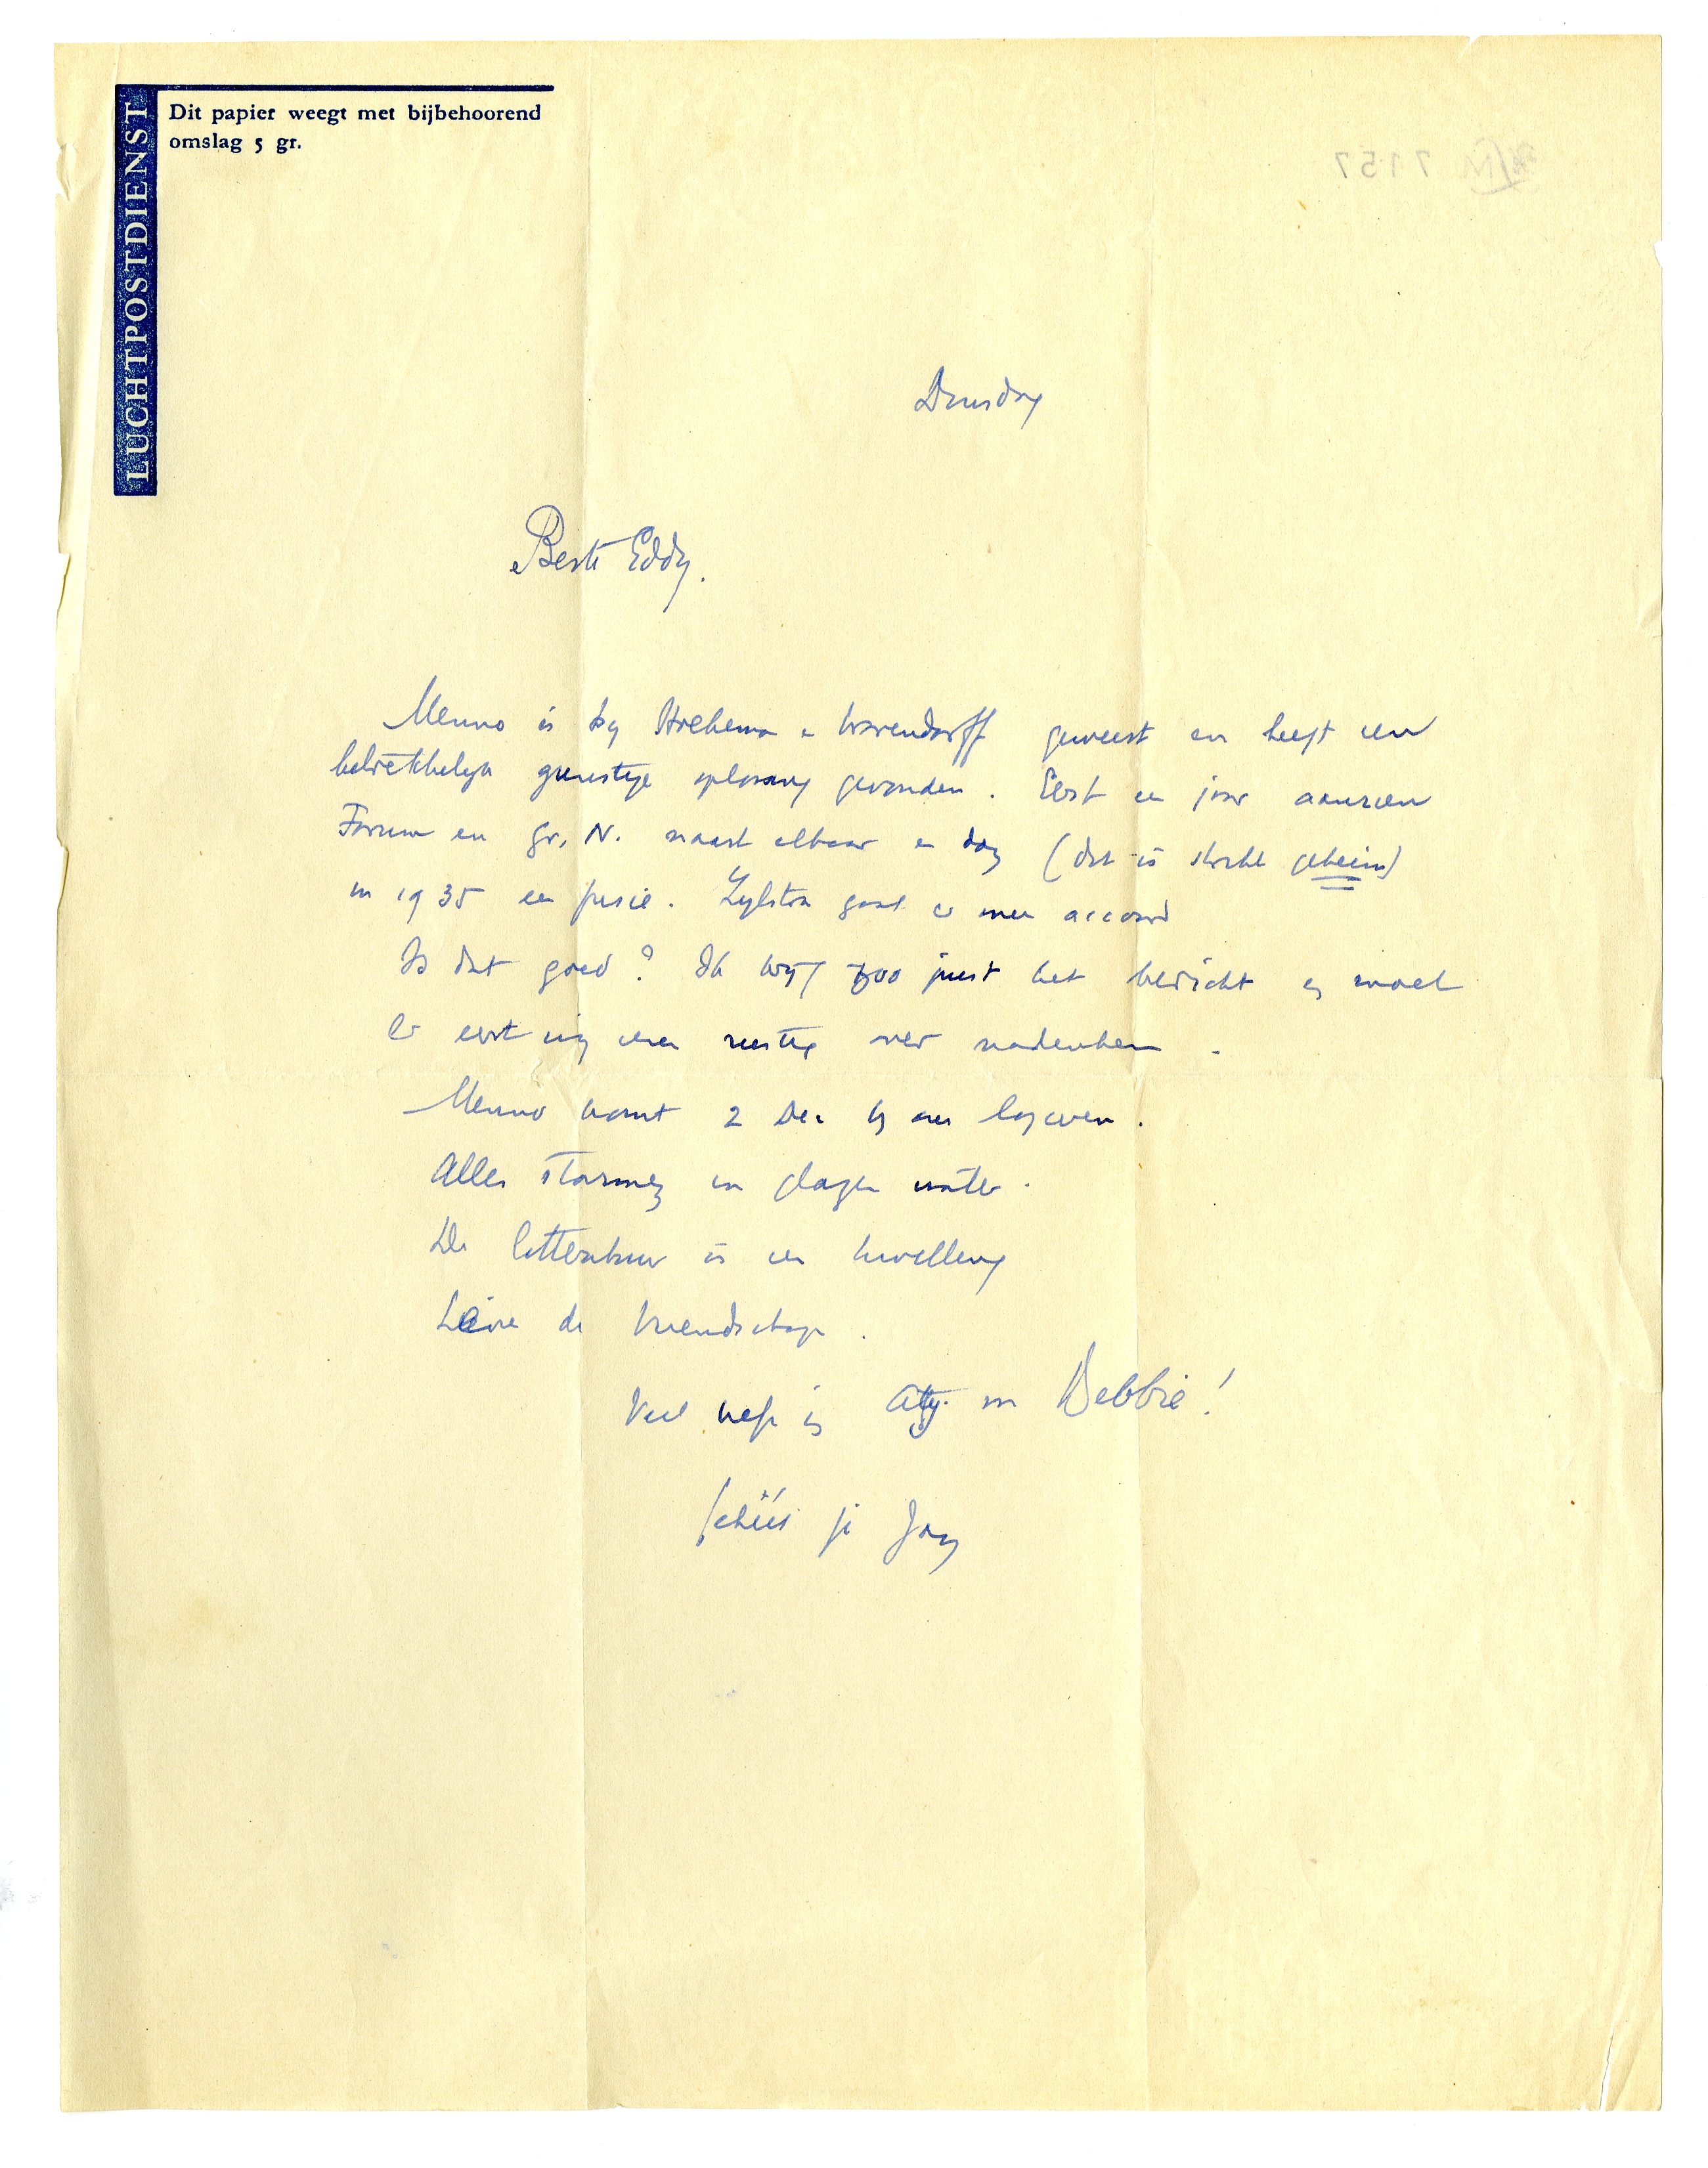 LUCHTPOSTDIENST
Dit papier weegt met bijbehoorend
omslag 5 gr.
7157
Dinsdag
Beste Eddy.
Menno is bij Hoekema en Warendorff geweest en heeft een
betrekkelijk gunstige oplossing gevonden. Eerst een jaar aanzien
Forum en Gr. N. naast elkaar en dan (dat is strikt geheim)
in 1935 een fusie. Zijlstra gaat er mee accoord
Is dat goed? Ik krijg zoo juist het bericht en moet
er eerst nog eens rustig over nadenken.
Menno komt 2 Dec bij ons logeeren.
Alles stormen in glazen water.
De litteratuur is een kwelling
Leve de vriendschap.
Veel liefs bij Atty. en Bebbie!
je Jan